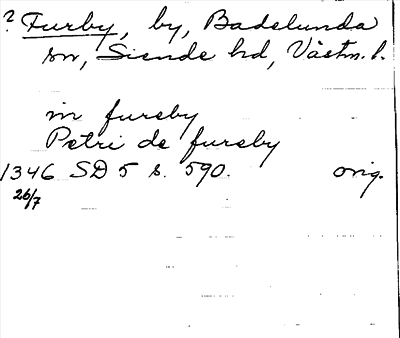 ? Furby, by, Badelunda
sn, Siende hd, Västm. l.
in fursby
Petri de fursby
1346 SD 5 s. 590. orig.
26/7